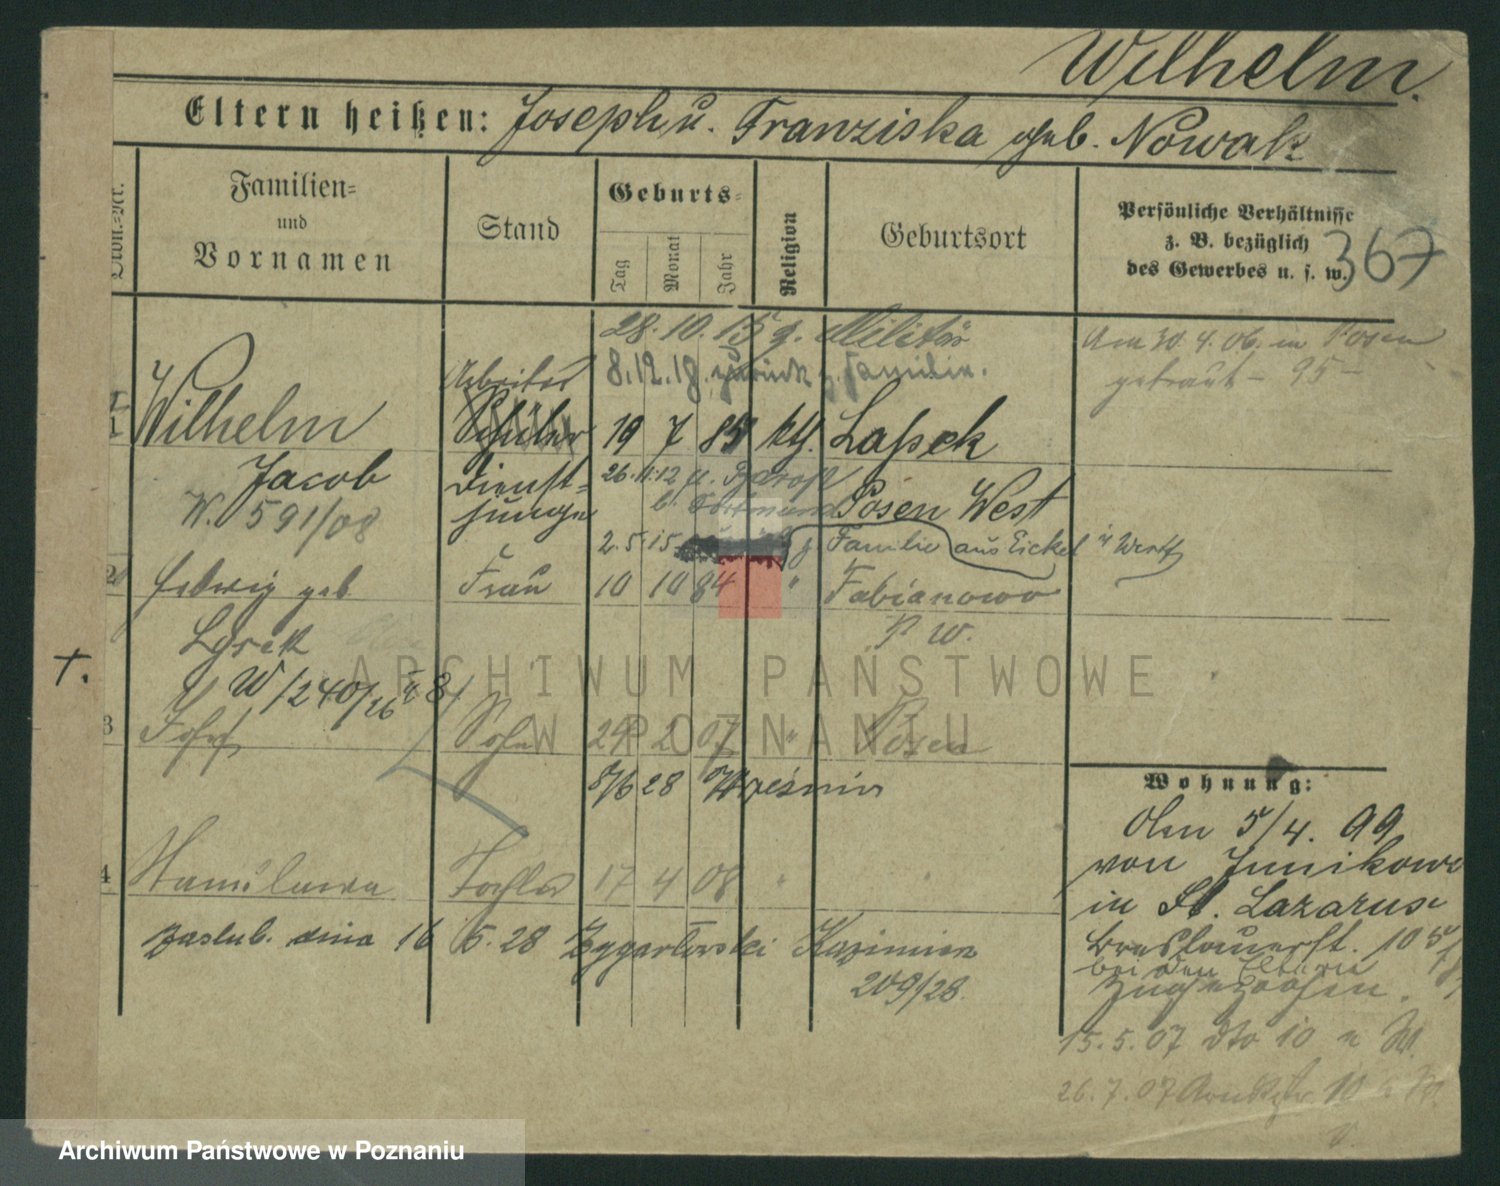 Wilhelm.
Eltern heißen: Joseph u. Franziska geb. Nowak
Familien=
und
Vornamen
Stand
Geburts=
Tag
Monat
Jahr
Religion
Geburtsort
Persönliche Verhältnisse
z. B. bezüglich
des Gewerbes u. s. w.
367
28. 10. 15 z. Militär
Am 30. 4. 06. in Posen
getraut - 95 -
8. 12. 18. zurück z. Familie.
Arbeiter
1 Wilhelm Schüler 19 7 85 kth. Lassek
Jacob Dienst=
junge
26. 11. 12
Posen West
W. 591/08
2. 5. 15 z. Familie aus Eickel
2 Hedwig geb Frau 10 10 84 " Fabianowo
P. W.
†.
W/240/26
3 Josef Sohn 29 2 07 " Posen
8/6 28 Wrześnie
4 Stanislawa Tochter 17 4 08 " "
Zaslub. dnia 16 5. 28 Zygarlowski Kazimierz
209/28
Wohnung:
Am 5/4. 99
von Junikowo
in St. Lazarus
Breslauerst. 10
bei den Eltern
zugezogen.
15. 5. 07 dto 10
26. 7. 07
ARCHIWUM PAŃSTWOWE
W POZNANIU
Archiwum Państwowe w Poznaniu